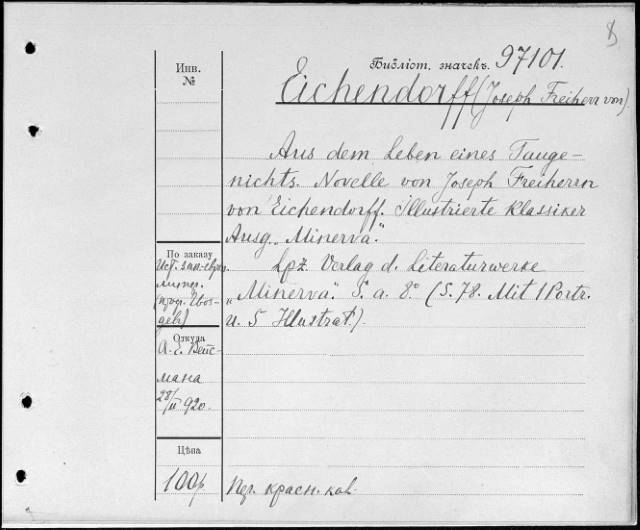 8
Библіот. значекъ. 97101.
Инв.
№
Eichendorff (Joseph Freiherr von)
Aus dem Leben eines Tauge-
nichts. Novelle von Joseph Freiherrn
von Eichendorff. Illustrierte Klassiker
Ausg. „Minerva".
Lpz. Verlag d. Literaturwerke
„Minerva". S. a. 8° (S. 78. Mit 1 Portr.
u. 5 Illustrat.).
По заказу
Ист. зап.-европ.
литер.
(проф.
Откуда
А. Е. Вейс-
мана
28/II 920.
Цѣна
100р
красн. кож.